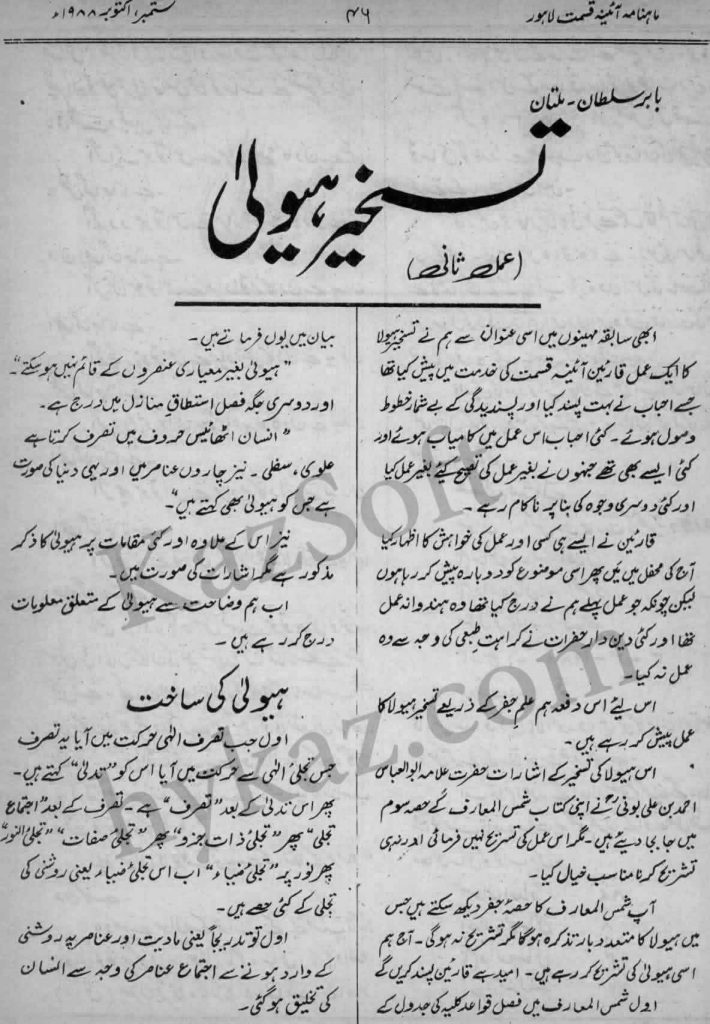 ماہنامہ آئینہ قسمت لاہور
۴۶
ستمبر، اکتوبر ۱۹۸۸ء
بابر سلطان۔ ملتان
تسخیر ہیولیٰ
(عمل ثانی)
ابھی سابقہ مہینوں میں اسی عنوان سے ہم نے تسخیر ہیولا
کا ایک عمل قارئین آئینہ قسمت کی خدمت میں پیش کیا تھا
جسے احباب نے بہت پسند کیا اور پسندیدگی کے بے شمار خطوط
وصول ہوئے۔ کئی احباب اس عمل میں کامیاب ہوئے اور
کئی ایسے بھی تھے جنہوں نے بغیر عمل کی تصحیح کیئے بغیر عمل کیا
اور کئی دوسری وجوہ کی بنا پر ناکام رہے۔
قارئین نے ایسے ہی کسی اور عمل کی خواہش کا اظہار کیا
آج کی محفل میں میں پھر اسی موضوع کو دوبارہ پیش کر رہا ہوں
لیکن چونکہ جو عمل پہلے ہم نے درج کیا تھا وہ ہندوانہ عمل
تھا اور کئی دین دار حضرات نے کراہت طبعی کی وجہ سے وہ
عمل نہ کیا۔
اس لیئے اس دفعہ ہم علم جفر کے ذریعے تسخیر ہیولا کا
عمل پیش کر رہے ہیں۔
اس ہیولا کی تسخیر کے اشارات حضرت علامہ ابو العباس
احمد بن علی بونی رح نے اپنی کتاب شمس المعارف کے حصہ سوم
میں جا بجا دیئے ہیں۔ مگر اس عمل کی تسریح نہیں فرمائی اور نہ ہی
تشریح کرنا مناسب خیال کیا۔
آپ شمس المعارف کا حصہ جفر دیکھ سکتے ہیں جس
میں ہیولا کا متعدد بار تذکرہ ہوگا مگر تشریح نہ ہوگی۔ آج ہم
اسی ہیولیٰ کی تشریح کر رہے ہیں۔ امید ہے قارئین پسند کریں گے
اول شمس المعارف میں فصل قواعد کلیہ کی جدول کے
بیان میں یوں فرماتے ہیں۔
"ہیولیٰ بغیر معیاری عنصروں کے قائم نہیں ہو سکتے"۔
اور دوسری جگہ فصل استنطاق منازل میں درج ہے۔
"انسان اٹھائیس حروف میں تصرف کرتا ہے
علوی، سفلی۔ نیز چاروں عناصر میں اور یہی دنیا کی صورت
ہے جس کو ہیولیٰ بھی کہتے ہیں"۔
نیز اس کے علاوہ اور کئی مقامات پر ہیولیٰ کا ذکر
مذکور ہے مگر اشارات کی صورت میں۔
اب ہم وضاحت سے ہیولیٰ کے متعلق معلومات
درج کر رہے ہیں۔
ہیولیٰ کی ساخت
اول جب تصرف الہٰی حرکت میں آیا یہ تصرف
جس تجلیٔ الہٰی سے حرکت میں آیا اس کو "تدلیٰ" کہتے ہیں۔
پھر اس تدلیٰ کے بعد "تصرف" ہے۔ تصرف کے بعد "اجتماع
تجلی" پھر "تجلیٔ ذات بجزو" پھر "تجلیٔ صفات" "تجلیٔ النور"
پھر نور پر "تجلیٔ ضیاء" اب اس تجلیٔ ضیاء یعنی روشنی کی
تجلی کے کئی حصے ہیں۔
اول تو تدریجاً یعنی مادیت اور عناصر پہ روشنی
کے وارد ہونے سے اجتماع عناصر کی وجہ سے انسان
کی تخلیق ہو گئی۔
KazSoft
hykaz.com